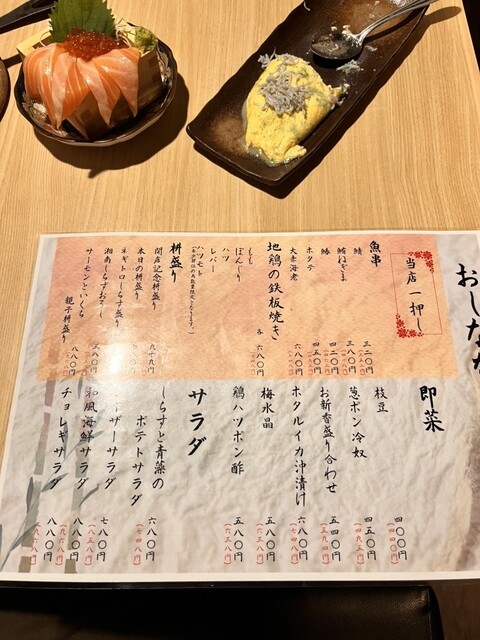 おしなが
当店一押し
魚串
鯖 三二〇円
鮪ねぎま 三八〇円
鰆 四五〇円
ホタテ
大赤海老 六八〇円
地鶏の鉄板焼き 各 六八〇円
もも
ぼんじり
ハツ
レバー
ハツモト
枡盛り
開店記念枡盛り 九七九円
本日の枡盛り
ネギトロしらす盛り
湘南しらすおろし 三八〇円
サーモンといくら
親子枡盛り 八八〇円
即菜
枝豆 四〇〇円
(四四〇円)
葱ポン冷奴 四五〇円
お新香盛り合わせ 五四〇円
ホタルイカ沖漬け 六八〇円
(七四八円)
梅水晶 五八〇円
(六三八円)
鶏ハツポン酢 五八〇円
(六三八円)
サラダ
しらすと青藻の
ポテトサラダ 六八〇円
(七四八円)
ーザーサラダ 七八〇円
(八五八円)
和風海鮮サラダ 八八〇円
(九六八円)
チョレギサラダ 八八〇円
(九六八円)